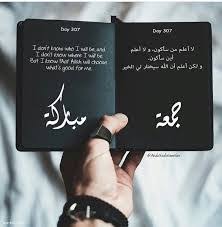 Day 307
I don't know who I will be and
I don't know where I will be
But I know that Allah will choose
what's good for me.
مباركة
Day 307
لا أعلم من سأكون، و لا أعلم
أين سأكون.
و لكن أعلم أن الله سيختار لي الخير
جمعة